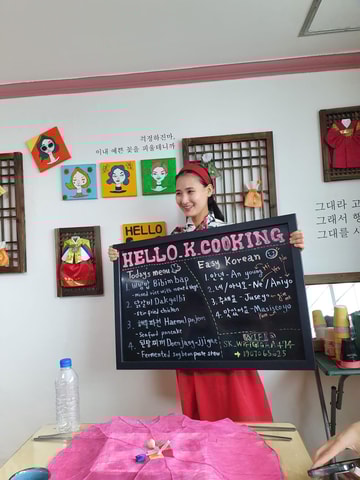 의정하진가,
이내 예쁜 꽃을 피울테니까
그대라
그래서
그대를
HELLO
HELLO K COOKING
Todays menu
1. 비빔밥 Bibimbap
- mixed rice with meat & veget
2. 닭갈비 Dakgalbi
- stir fried chicken
3. 해물파전 Haemul pajeon
- Seafood pancake
4. 된장찌개 Doenjang-jjigae
- Fermented soybean paste stew
Easy Korean
1. 안녕 - An young!!
2. 네/아니요 - Ne/Aniyo
3. 주세요 - Juseyo
4. 맛있어요 - Masisseoyo
WIFI
→ 1907065625